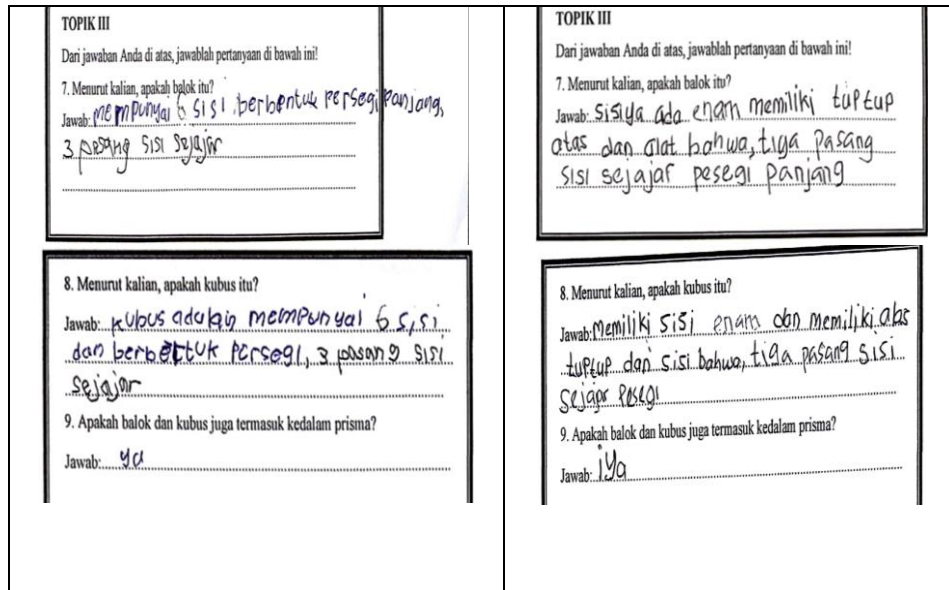 TOPIK III
Dari jawaban Anda di atas, jawablah pertanyaan di bawah ini!
7. Menurut kalian, apakah balok itu?
Jawab: mempunyai 6 sisi berbentuk persegi panjang,
3 pasang sisi sejajar
8. Menurut kalian, apakah kubus itu?
Jawab: kubus adalah mempunyai 6 sisi
dan berbettuk persegi, 3 pasang sisi
sejajar
9. Apakah balok dan kubus juga termasuk kedalam prisma?
Jawab: ya
TOPIK III
Dari jawaban Anda di atas, jawablah pertanyaan di bawah ini!
7. Menurut kalian, apakah balok itu?
Jawab: sisiya ada enam memiliki tuptup
atas dan alat bahwa, tiga pasang
sisi sejajar pesegi panjang
8. Menurut kalian, apakah kubus itu?
Jawab: Memiliki sisi enam dan memiliki
tuptup dan sisi bahwa, tiga pasang sisi
sejajar pesegi
9. Apakah balok dan kubus juga termasuk kedalam prisma?
Jawab: iya